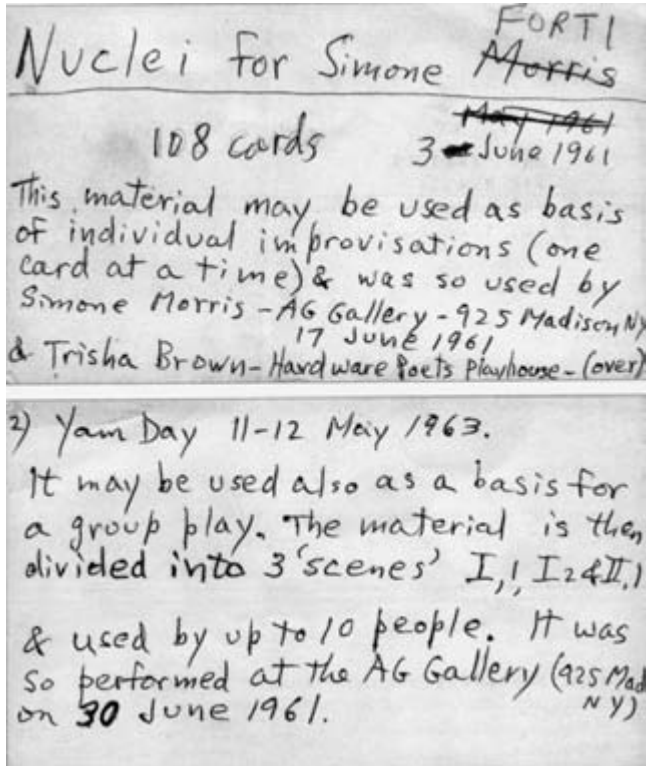 FORTI
Nuclei for Simone Morris
May 1961
108 cards 3 June 1961
This material may be used as basis
of individual improvisations (one
card at a time) & was so used by
Simone Morris - AG Gallery - 925 Madison NY
17 June 1961
& Trisha Brown - Hardware Poets Playhouse - (over)
2) Yam Day 11-12 May 1963.
It may be used also as a basis for
a group play. The material is then
divided into 3 'scenes' I,1, I2 & II,1
& used by up to 10 people. It was
so performed at the AG Gallery (925 Mad
NY)
on 30 June 1961.